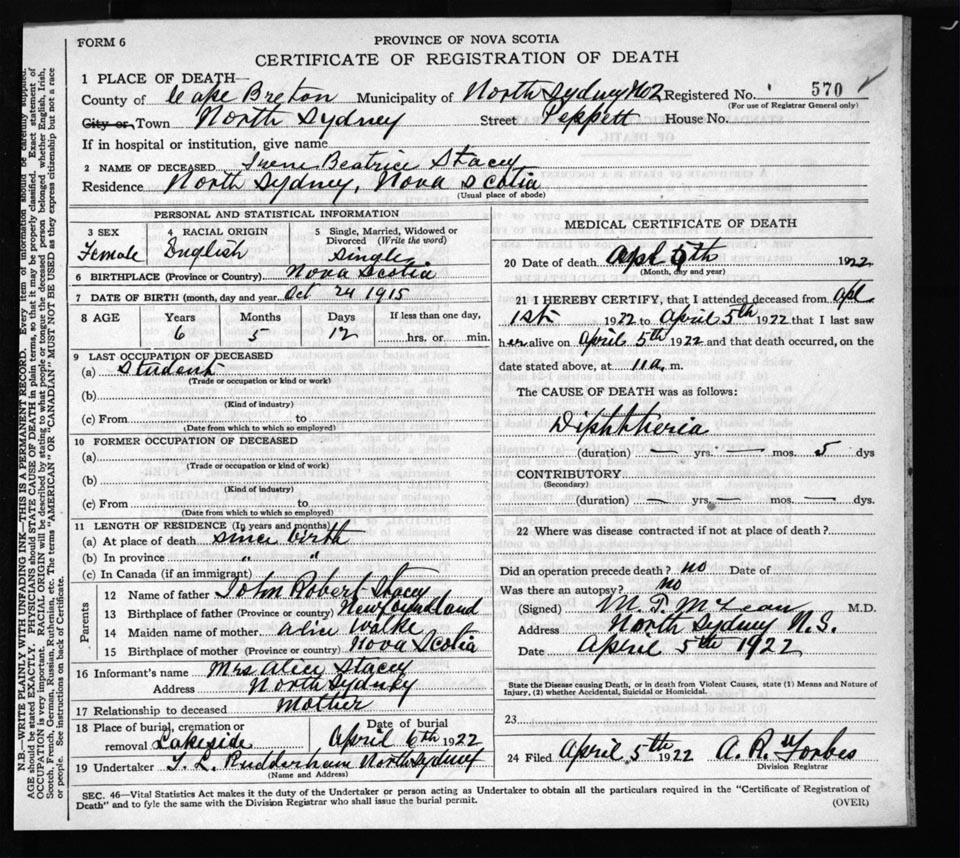 FORM 6
PROVINCE OF NOVA SCOTIA
CERTIFICATE OF REGISTRATION OF DEATH
1 PLACE OF DEATH—
County of Cape Breton Municipality of North Sydney No2 Registered No. 570
(For use of Registrar General only)
City or Town North Sydney Street Peppett House No.
If in hospital or institution, give name
2 NAME OF DECEASED Irene Beatrice Stacey
Residence North Sydney, Nova Scotia
(Usual place of abode)
PERSONAL AND STATISTICAL INFORMATION
3 SEX 4 RACIAL ORIGIN 5 Single, Married, Widowed or Divorced (Write the word)
Female English Single
6 BIRTHPLACE (Province or Country) Nova Scotia
7 DATE OF BIRTH (month, day and year) Oct 24 1915
8 AGE Years Months Days If less than one day,
6 5 12 hrs. or min.
9 LAST OCCUPATION OF DECEASED
(a) Student
(Trade or occupation or kind or work)
(b)
(Kind of industry)
(c) From to
(Date from which to which so employed)
10 FORMER OCCUPATION OF DECEASED
(a)
(Trade or occupation or kind of work)
(b)
(Kind of industry)
(c) From to
(Date from which to which so employed)
11 LENGTH OF RESIDENCE (In years and months)
(a) At place of death since birth
(b) In province " "
(c) In Canada (if an immigrant)
Parents
12 Name of father John Robert Stacey
13 Birthplace of father (Province or country) Newfoundland
14 Maiden name of mother Alice Walke
15 Birthplace of mother (Province or country) Nova Scotia
16 Informant's name Mrs Alice Stacey
Address North Sydney
17 Relationship to deceased Mother
18 Place of burial, cremation or removal Lakeside Date of burial April 6th 1922
19 Undertaker T. L. Rudderham North Sydney
(Name and Address)
MEDICAL CERTIFICATE OF DEATH
20 Date of death Apl 5th 1922
(Month, day and year)
21 I HEREBY CERTIFY, that I attended deceased from Apl
1st 1922 to April 5th 1922 that I last saw
her alive on April 5th 1922 and that death occurred, on the
date stated above, at 11 a. m.
The CAUSE OF DEATH was as follows:
Diphtheria
(duration) — yrs. — mos. 5 dys
CONTRIBUTORY
(Secondary)
(duration) — yrs. — mos. — dys.
22 Where was disease contracted if not at place of death?
Did an operation precede death? no Date of
Was there an autopsy? no
(Signed) M. T. McLean M.D.
Address North Sydney N.S.
Date April 5th 1922
State the Disease causing Death, or in death from Violent Causes, state (1) Means and Nature of
Injury, (2) whether Accidental, Suicidal or Homicidal.
23
24 Filed April 5th 1922 A. R. Forbes
Division Registrar
SEC. 46—Vital Statistics Act makes it the duty of the Undertaker or person acting as Undertaker to obtain all the particulars required in the "Certificate of Registration of
Death" and to fyle the same with the Division Registrar who shall issue the burial permit.
(OVER)
N.B.—WRITE PLAINLY WITH UNFADING INK—THIS IS A PERMANENT RECORD. Every item of information should be carefully supplied.
AGE should be stated EXACTLY. PHYSICIANS should STATE CAUSE OF DEATH in plain terms, so that it may be properly classified. Exact statement of
OCCUPATION is very important. RACIAL ORIGIN will be described by stating to what people or tongue the deceased person belonged whether English, Irish,
Scotch, French, German, Russian, Ruthenian, etc. The terms "AMERICAN" OR "CANADIAN" MUST NOT BE USED as they express citizenship but not a race
or people. See instructions on back of Certificate.